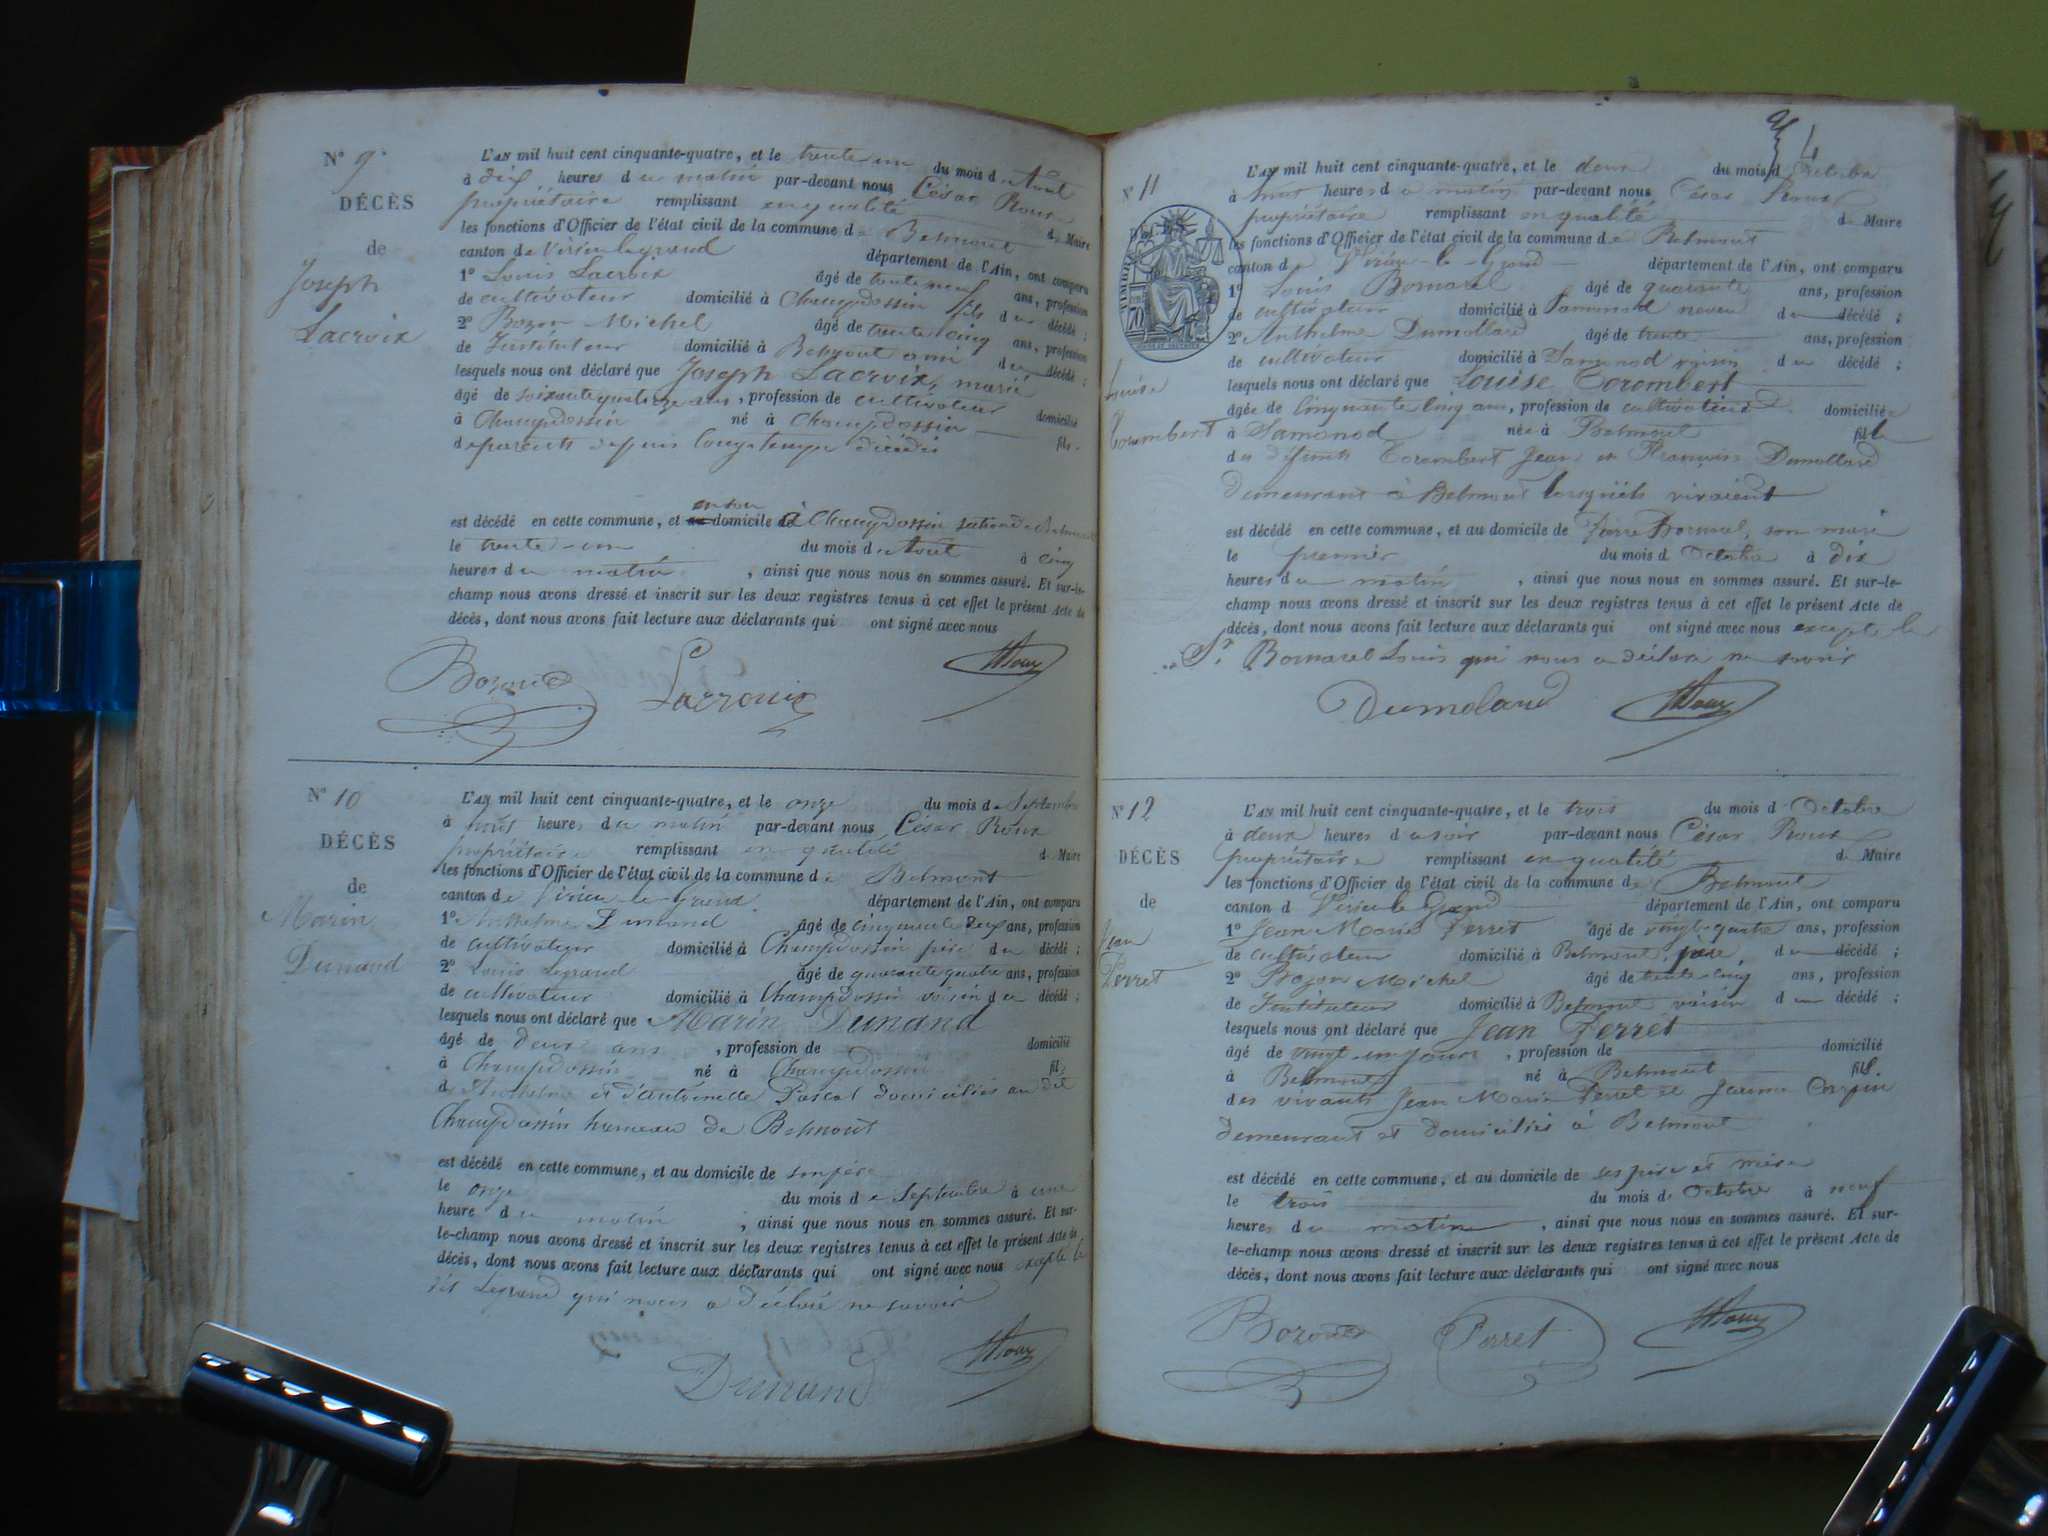 N° 9.
DÉCÈS
de
Joseph
Lacroix
L'AN mil huit cent cinquante-quatre, et le trente un du mois d'Aout
à dix heures du matin par-devant nous César Roux
propriétaire remplissant en qualité de Maire
les fonctions d'Officier de l'état civil de la commune de Belmont
canton de Virieu le grand département de l'Ain, ont comparu
1° Louis Lacroix âgé de trente neuf ans, profession
de cultivateur domicilié à Champdossin fils du décédé ;
2° Bozon Michel âgé de trente cinq ans, profession
de Instituteur domicilié à Belmont ami du décédé ;
lesquels nous ont déclaré que Joseph Lacroix, marié
âgé de soixante quatorze ans, profession de cultivateur domicilié
à Champdossin né à Champdossin fils
de parents depuis longtemps décédés
est décédé en cette commune, et en son domicile à Champdossin section de Belmont
le trente-un du mois d'Aout à cinq
heures du matin, ainsi que nous nous en sommes assuré. Et sur-le-
champ nous avons dressé et inscrit sur les deux registres tenus à cet effet le présent Acte de
décès, dont nous avons fait lecture aux déclarants qui ont signé avec nous
Bozon Lacrouix Roux
N° 10
DÉCÈS
de
Marin
Dunand
L'AN mil huit cent cinquante-quatre, et le onze du mois de Septembre
à huit heures du matin par-devant nous César Roux
propriétaire remplissant en qualité de Maire
les fonctions d'Officier de l'état civil de la commune de Belmont
canton de Virieu-le-grand département de l'Ain, ont comparu
1° Anthelme Dunand âgé de cinquante deux ans, profession
de cultivateur domicilié à Champdossin père du décédé ;
2° Louis Legrand âgé de quarante quatre ans, profession
de cultivateur domicilié à Champdossin voisin du décédé ;
lesquels nous ont déclaré que Marin Dunand
âgé de deux ans, profession de domicilié
à Champdossin né à Champdossin fils
d'Anthelme et d'Antoinette Pascal domiciliés au dit
Champdossin hameau de Belmont
est décédé en cette commune, et au domicile de son père
le onze du mois de Septembre à une
heure du matin, ainsi que nous nous en sommes assuré. Et sur-
le-champ nous avons dressé et inscrit sur les deux registres tenus à cet effet le présent Acte de
décès, dont nous avons fait lecture aux déclarants qui ont signé avec nous excepté le
dit Legrand qui nous a déclaré ne savoir
Dunand Roux
4
N° 11
Louise
Corombert
L'AN mil huit cent cinquante-quatre, et le deux du mois d'Octobre
à huit heures du matin par-devant nous César Roux
propriétaire remplissant en qualité de Maire
les fonctions d'Officier de l'état civil de la commune de Belmont
canton de Virieu-le-Grand département de l'Ain, ont comparu
1° Louis Bornarel âgé de quarante ans, profession
de cultivateur domicilié à Samonod neveu du décédé ;
2° Anthelme Dumollard âgé de trente ans, profession
de cultivateur domicilié à Samonod voisin du décédé ;
lesquels nous ont déclaré que Louise Corombert
âgée de cinquante cinq ans, profession de cultivateur domiciliée
à Samonod née à Belmont fille
des défunts Corombert Jean et Françoise Dumollard
demeurant à Belmont lorsqu'ils vivaient
est décédé en cette commune, et au domicile de Pierre Bornarel, son mari
le premier du mois d'Octobre à dix
heures du matin, ainsi que nous nous en sommes assuré. Et sur-le-
champ nous avons dressé et inscrit sur les deux registres tenus à cet effet le présent Acte de
décès, dont nous avons fait lecture aux déclarants qui ont signé avec nous excepté le
Sr. Bornarel Louis qui nous a déclaré ne savoir
Dumolard Roux
N° 12
DÉCÈS
de
Jean
Perret
L'AN mil huit cent cinquante-quatre, et le trois du mois d'Octobre
à deux heures du soir par-devant nous César Roux
propriétaire remplissant en qualité de Maire
les fonctions d'Officier de l'état civil de la commune de Belmont
canton d Virieu le Grand département de l'Ain, ont comparu
1° Jean Marie Perret âgé de vingt-quatre ans, profession
de cultivateur domicilié à Belmont, père, du décédé ;
2° Bozon Michel âgé de trente-cinq ans, profession
de Instituteur domicilié à Belmont voisin du décédé ;
lesquels nous ont déclaré que Jean Perret
âgé de vingt-un jours, profession de domicilié
à Belmont né à Belmont fils
des vivants Jean Marie Perret et Jeanne Carpin
demeurant et domiciliés à Belmont
est décédé en cette commune, et au domicile de ses père et mère
le trois du mois d'Octobre à neuf
heures du matin, ainsi que nous nous en sommes assuré. Et sur-
le-champ nous avons dressé et inscrit sur les deux registres tenus à cet effet le présent Acte de
décès, dont nous avons fait lecture aux déclarants qui ont signé avec nous
Bozon Perret Roux